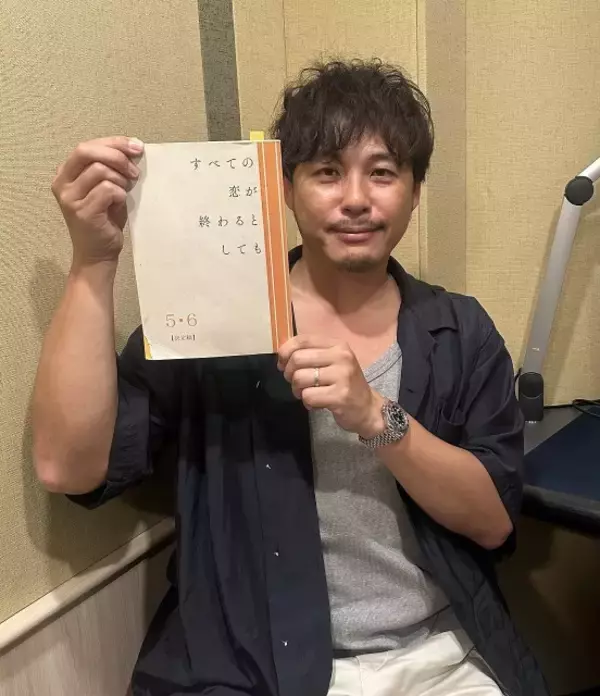 すべての
恋が
終わると
しても
5・6
【決定稿】